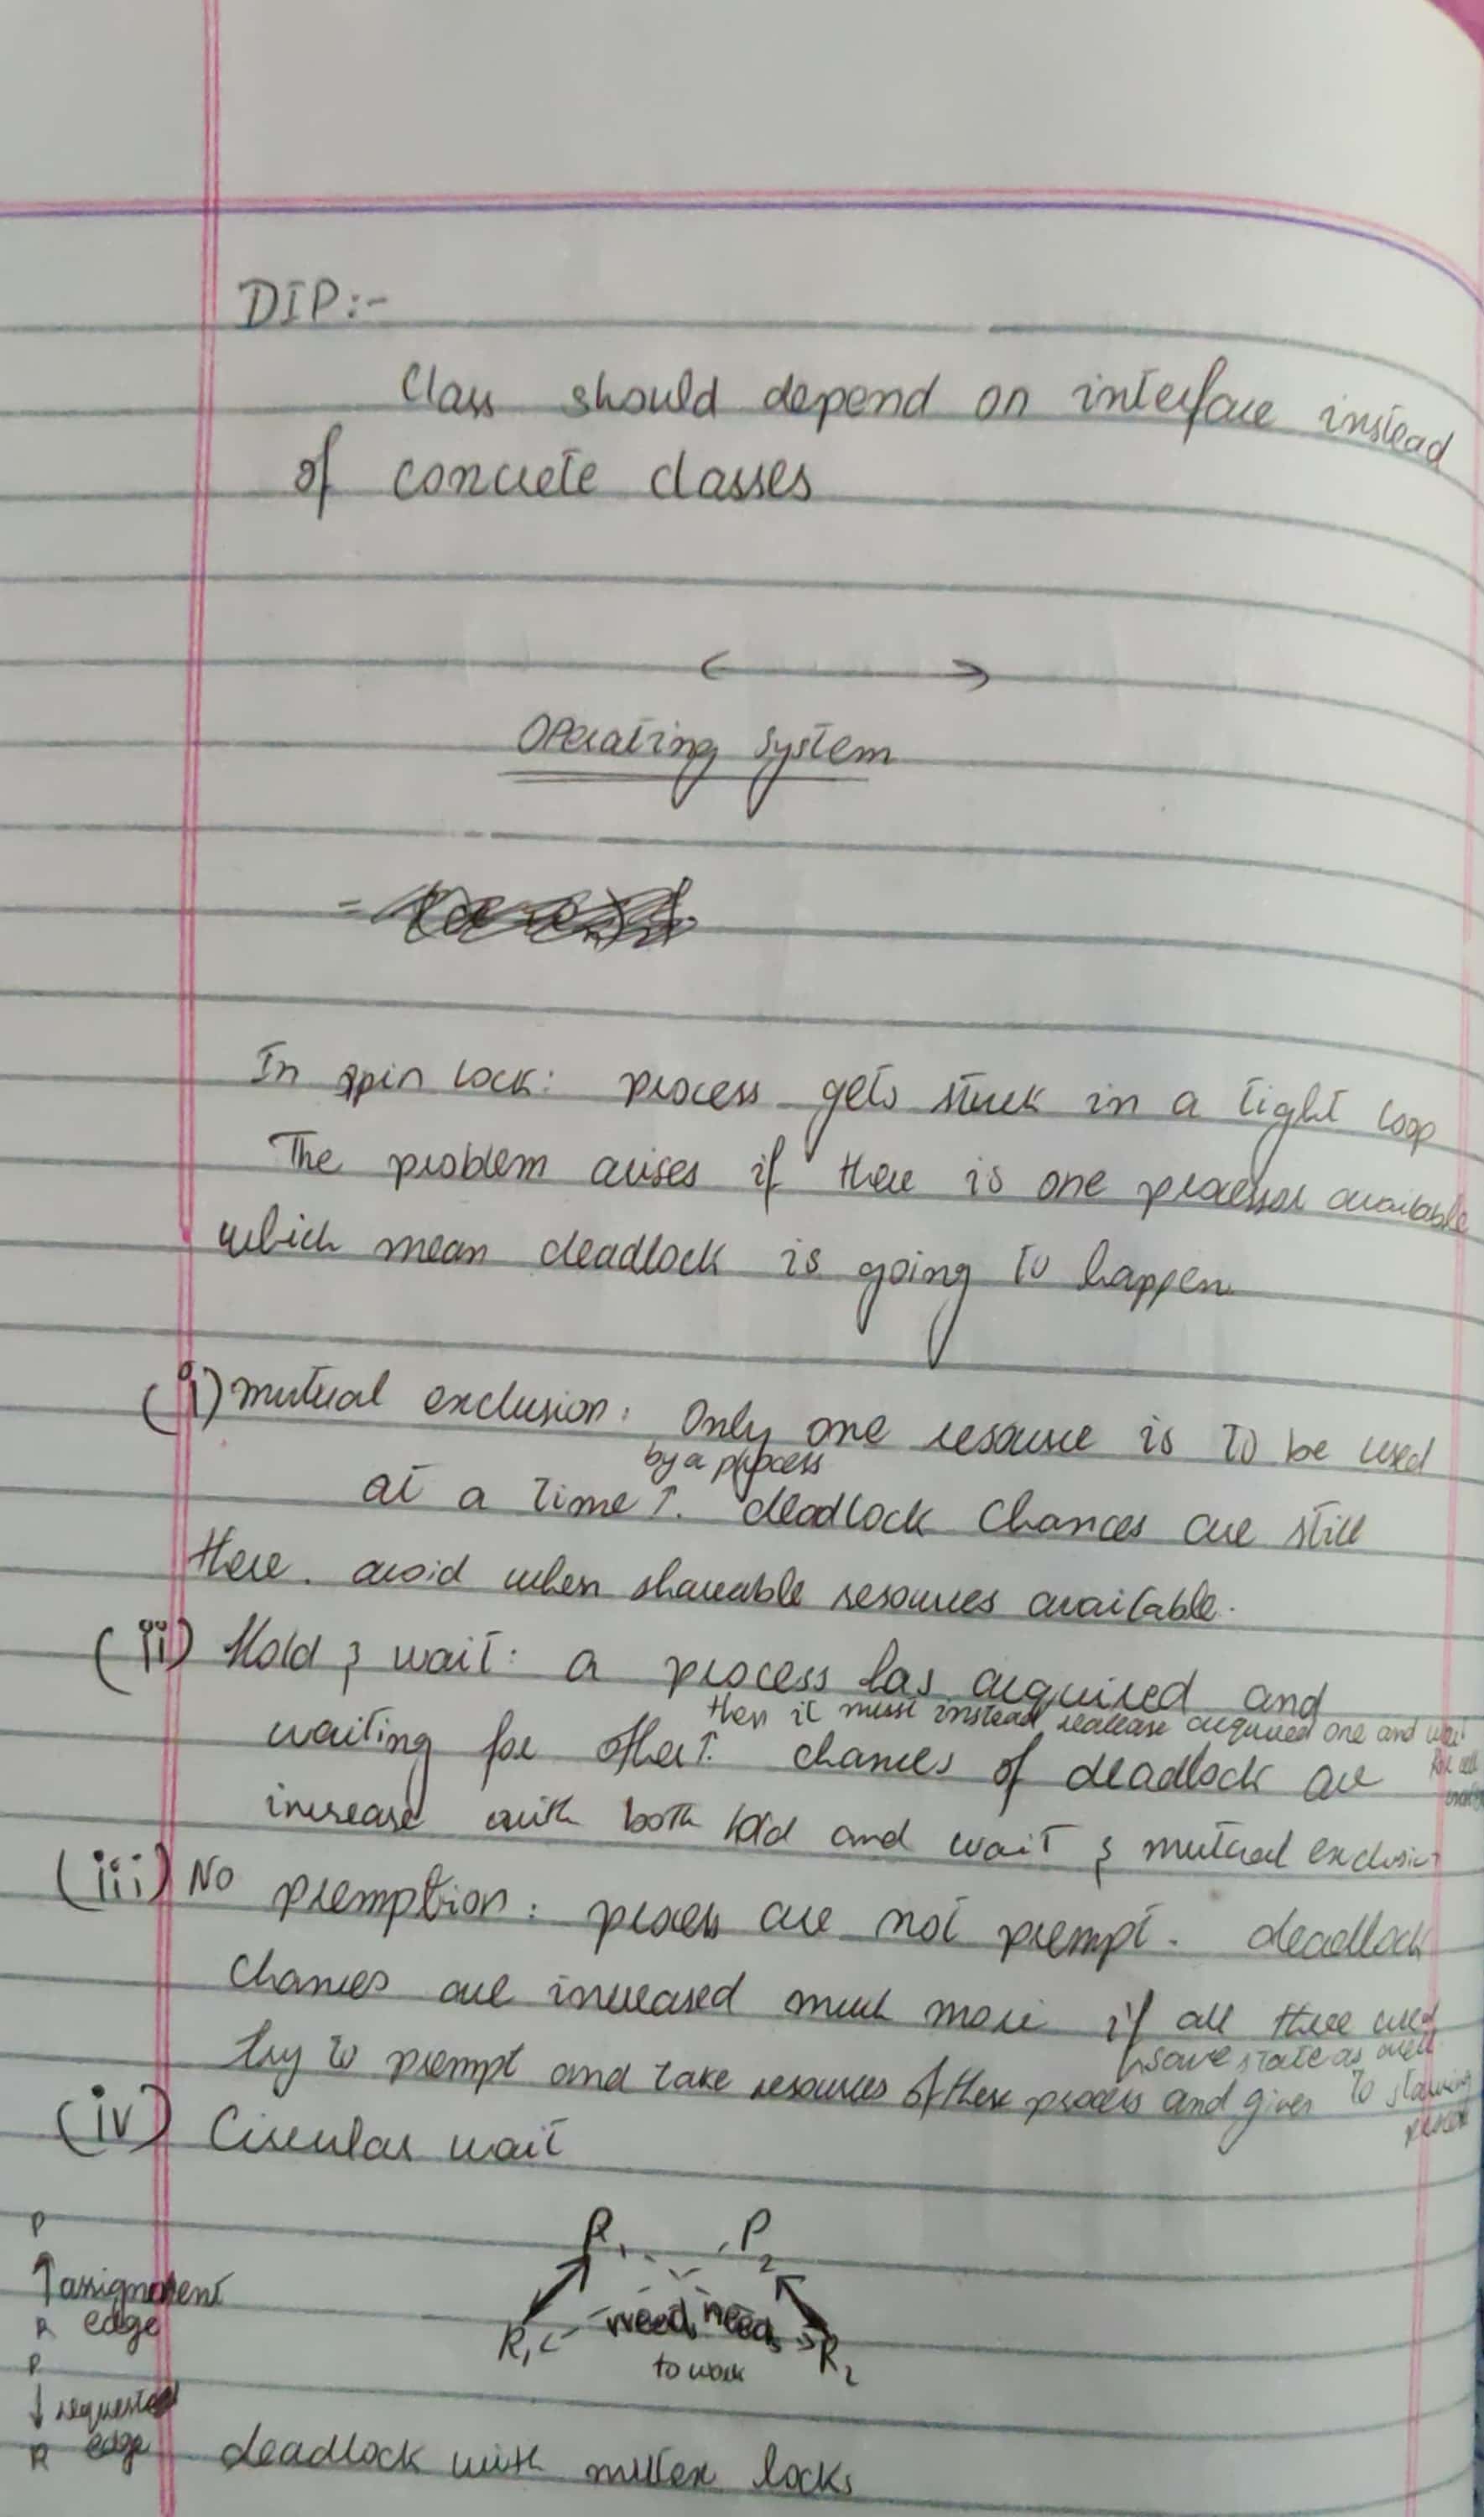 DIP:-
Class should depend on interface instead
of concrete classes
Operating System
In spin lock: process gets stuck in a tight loop
The problem arises if there is one processor available
which mean deadlock is going to happen
(i) mutual exclusion: Only one resource is to be used
by a process
at a time ↑. deadlock chances are still
there. avoid when shareable resources available.
(ii) Hold & wait: a process has acquired and
then it must instead realease acquired one and wait
waiting for other↑. chances of deadlock are
increase with both hold and wait & mutual exclusion
(iii) No premption: process are not prempt. deadlock
chances are increased much more if all three used
↳ save state as well
try to prempt and take resources of these process and given to starving
process
(iv) Circular wait
P
↑ assignment
R edge
P
↓ requested
R edge
P1 P2
need need
R1 R2
to work
deadlock with mutex locks